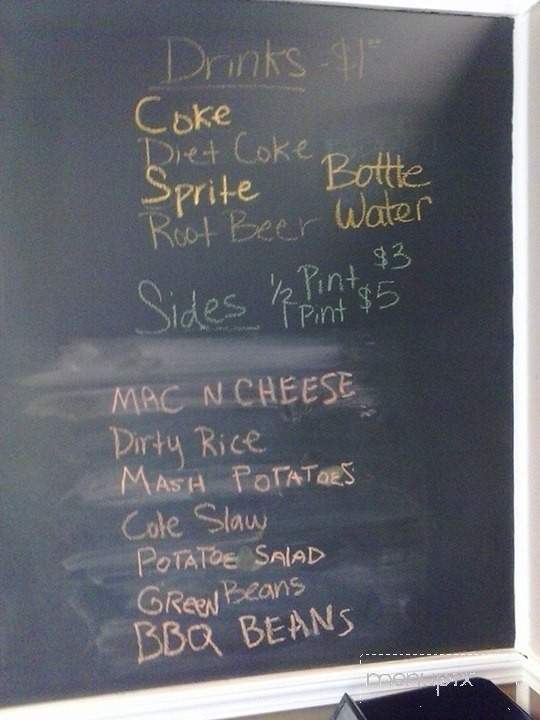 Drinks - $1
Coke
Diet Coke
Sprite
Root Beer
Bottle
Water
Sides
1/2 Pint $3
1 Pint $5
MAC N CHEESE
Dirty Rice
MASH POTATOES
Cole Slaw
POTATOE SALAD
GREEN Beans
BBQ BEANS
menupix